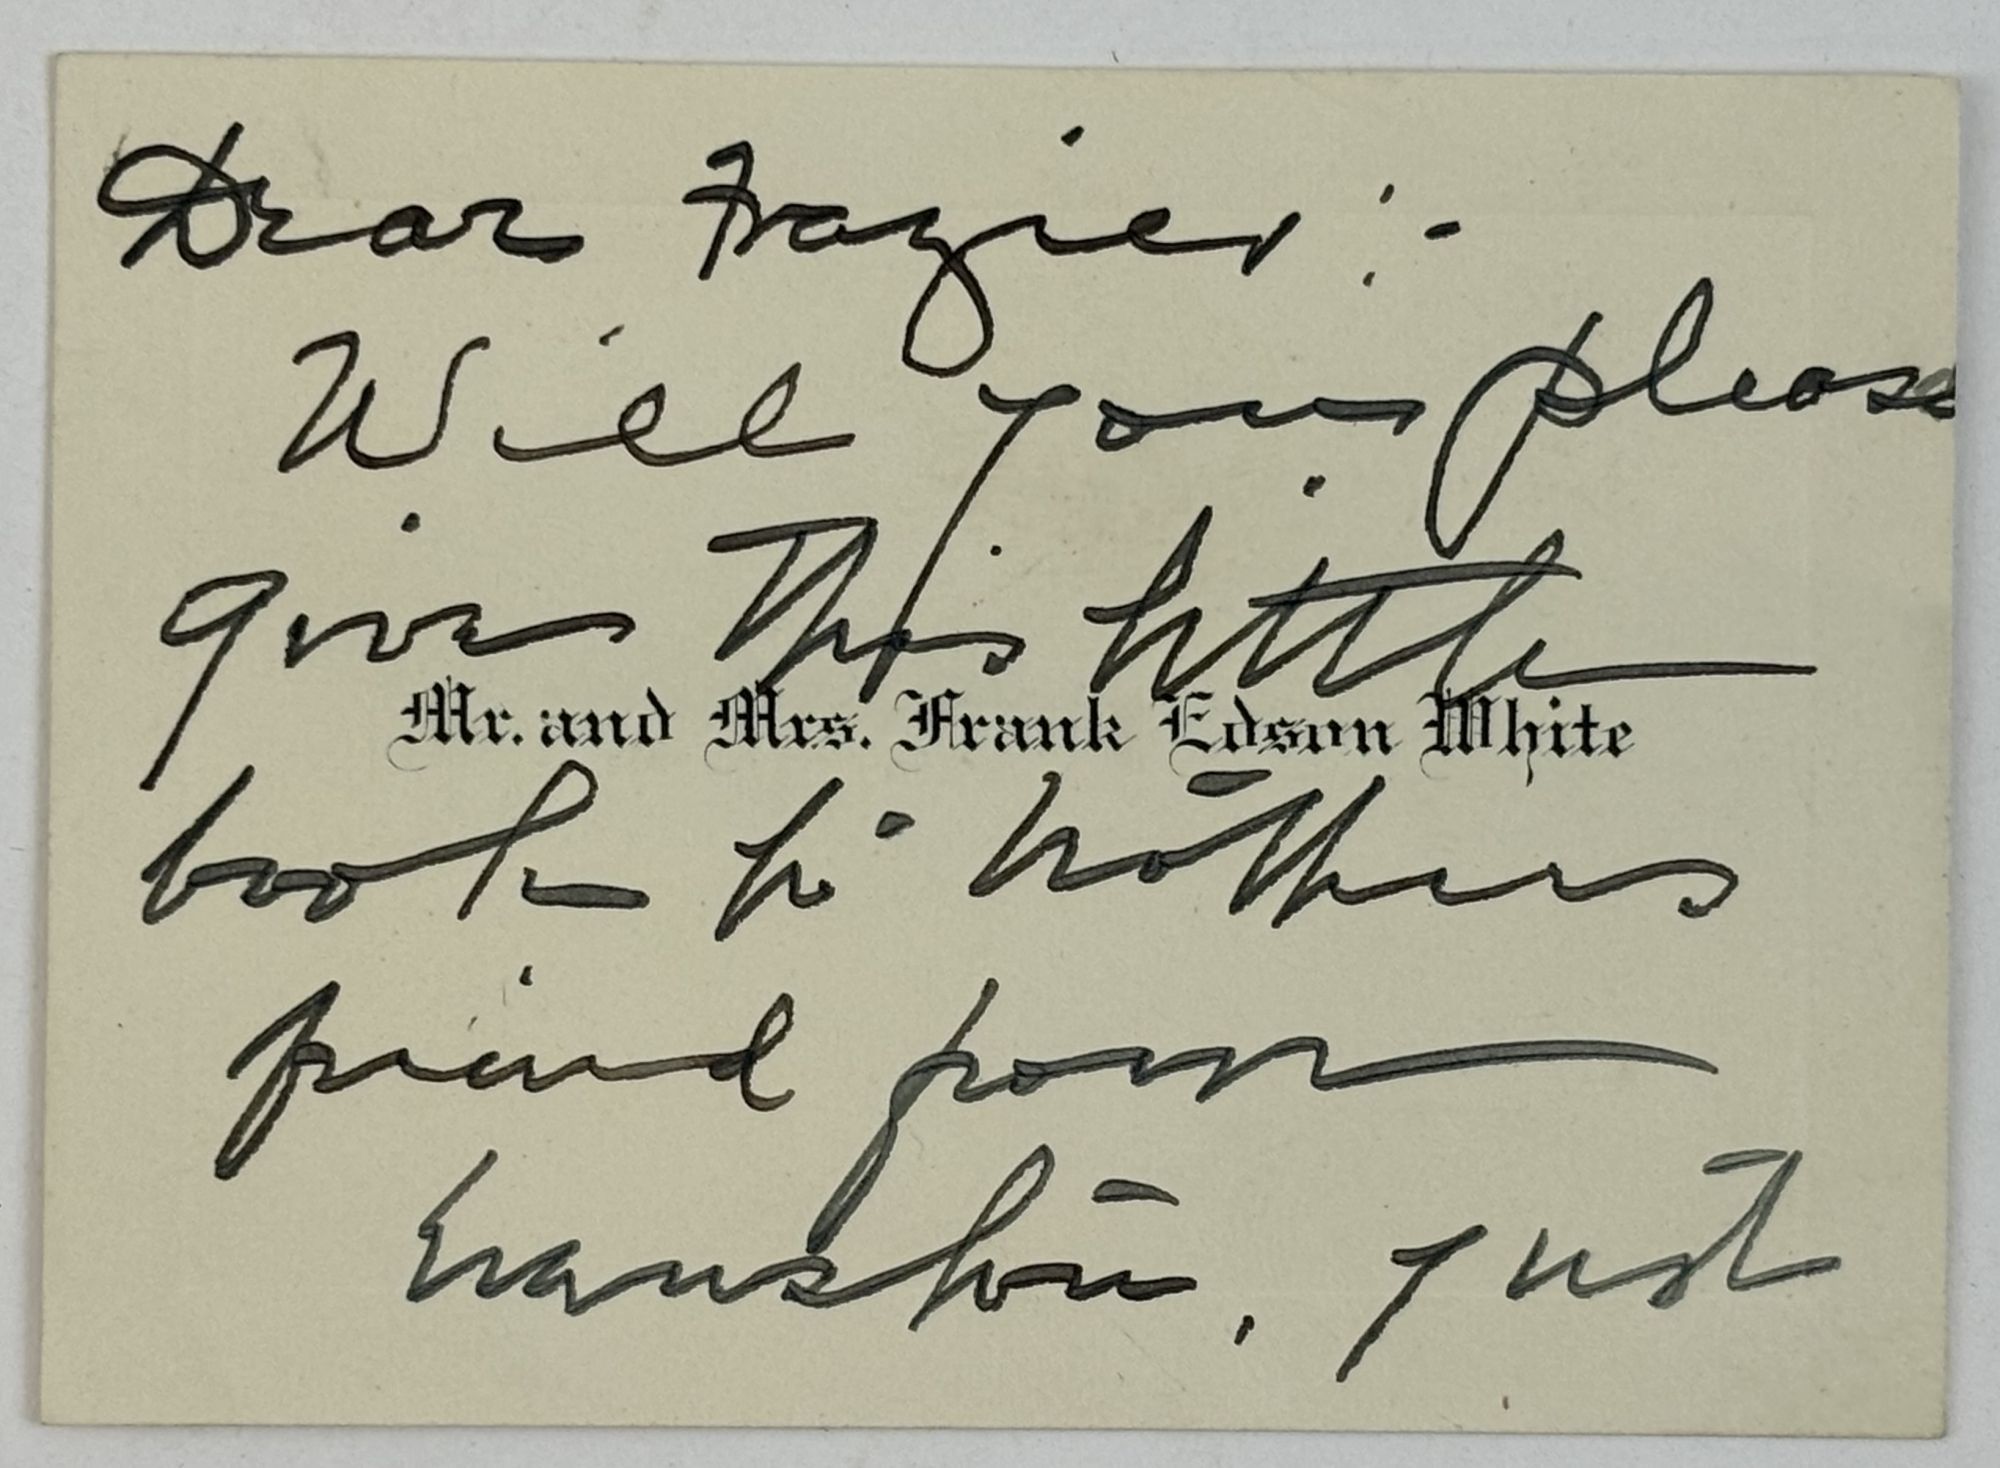 Dear Frazier :-
Will you please
give this little
Mr. and Mrs. Frank Edson White
book to Mothers
friend from
Evanston, Just